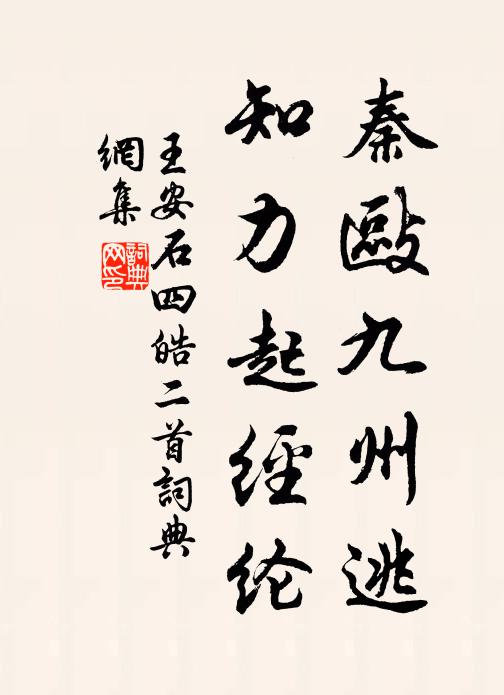 秦毆九州逃
知力起經纶
王安石四皓二首詞典
網集
詞典网印